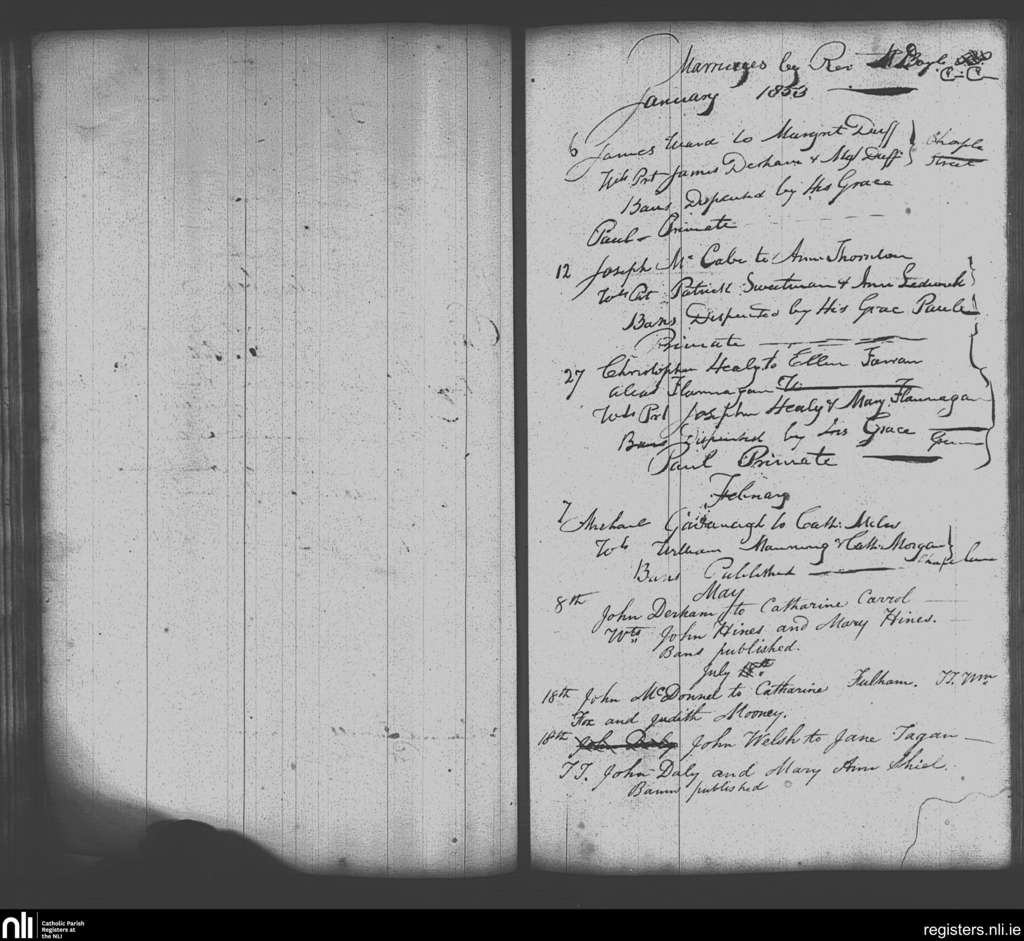 Marriages by Rev M Boyle C.C.
January 1853
6 James Ward to Margret Duff
Wits Prt James Derham & Mgt Duff
Chaple
Street
Bans Dispensed by His Grace
Paul Primate
12 Joseph McCabe to Ann Thornton
Wts Prt Patrick Sweetman & Ann
Bans Dispensed by His Grac Paul
Primate
27 Christopher Healy to Ellen Farran
alias Flannagan
Wts Prt Joseph Healy & Mary Flannagan
Bans Dispensed by his Grace
Paul Primate
February
7 Michael Cavanagh to Cath: Miles
Wts William Manning & Cath: Morgan
Bans Published
May
8th John Derham to Catharine Carrol
Wts John Hines and Mary Hines.
Bans published.
July 18th
18th John McDonnel to Catharine Fulham. TT. Wm
Fox and Judith Mooney.
18th John Daly John Welsh to Jane Fagan
TT. John Daly and Mary Ann Shiel.
Banns published
nli
Catholic Parish
Registers at
the NLI
registers.nli.ie